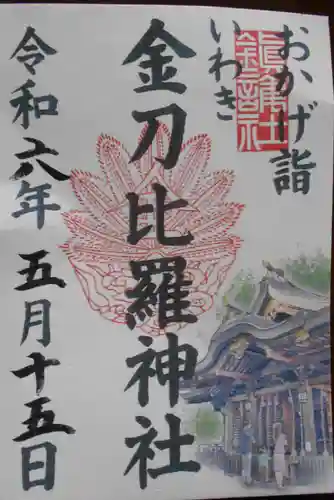 おかげ詣
いわき
金刀比羅神社
令和六年 五月十五日